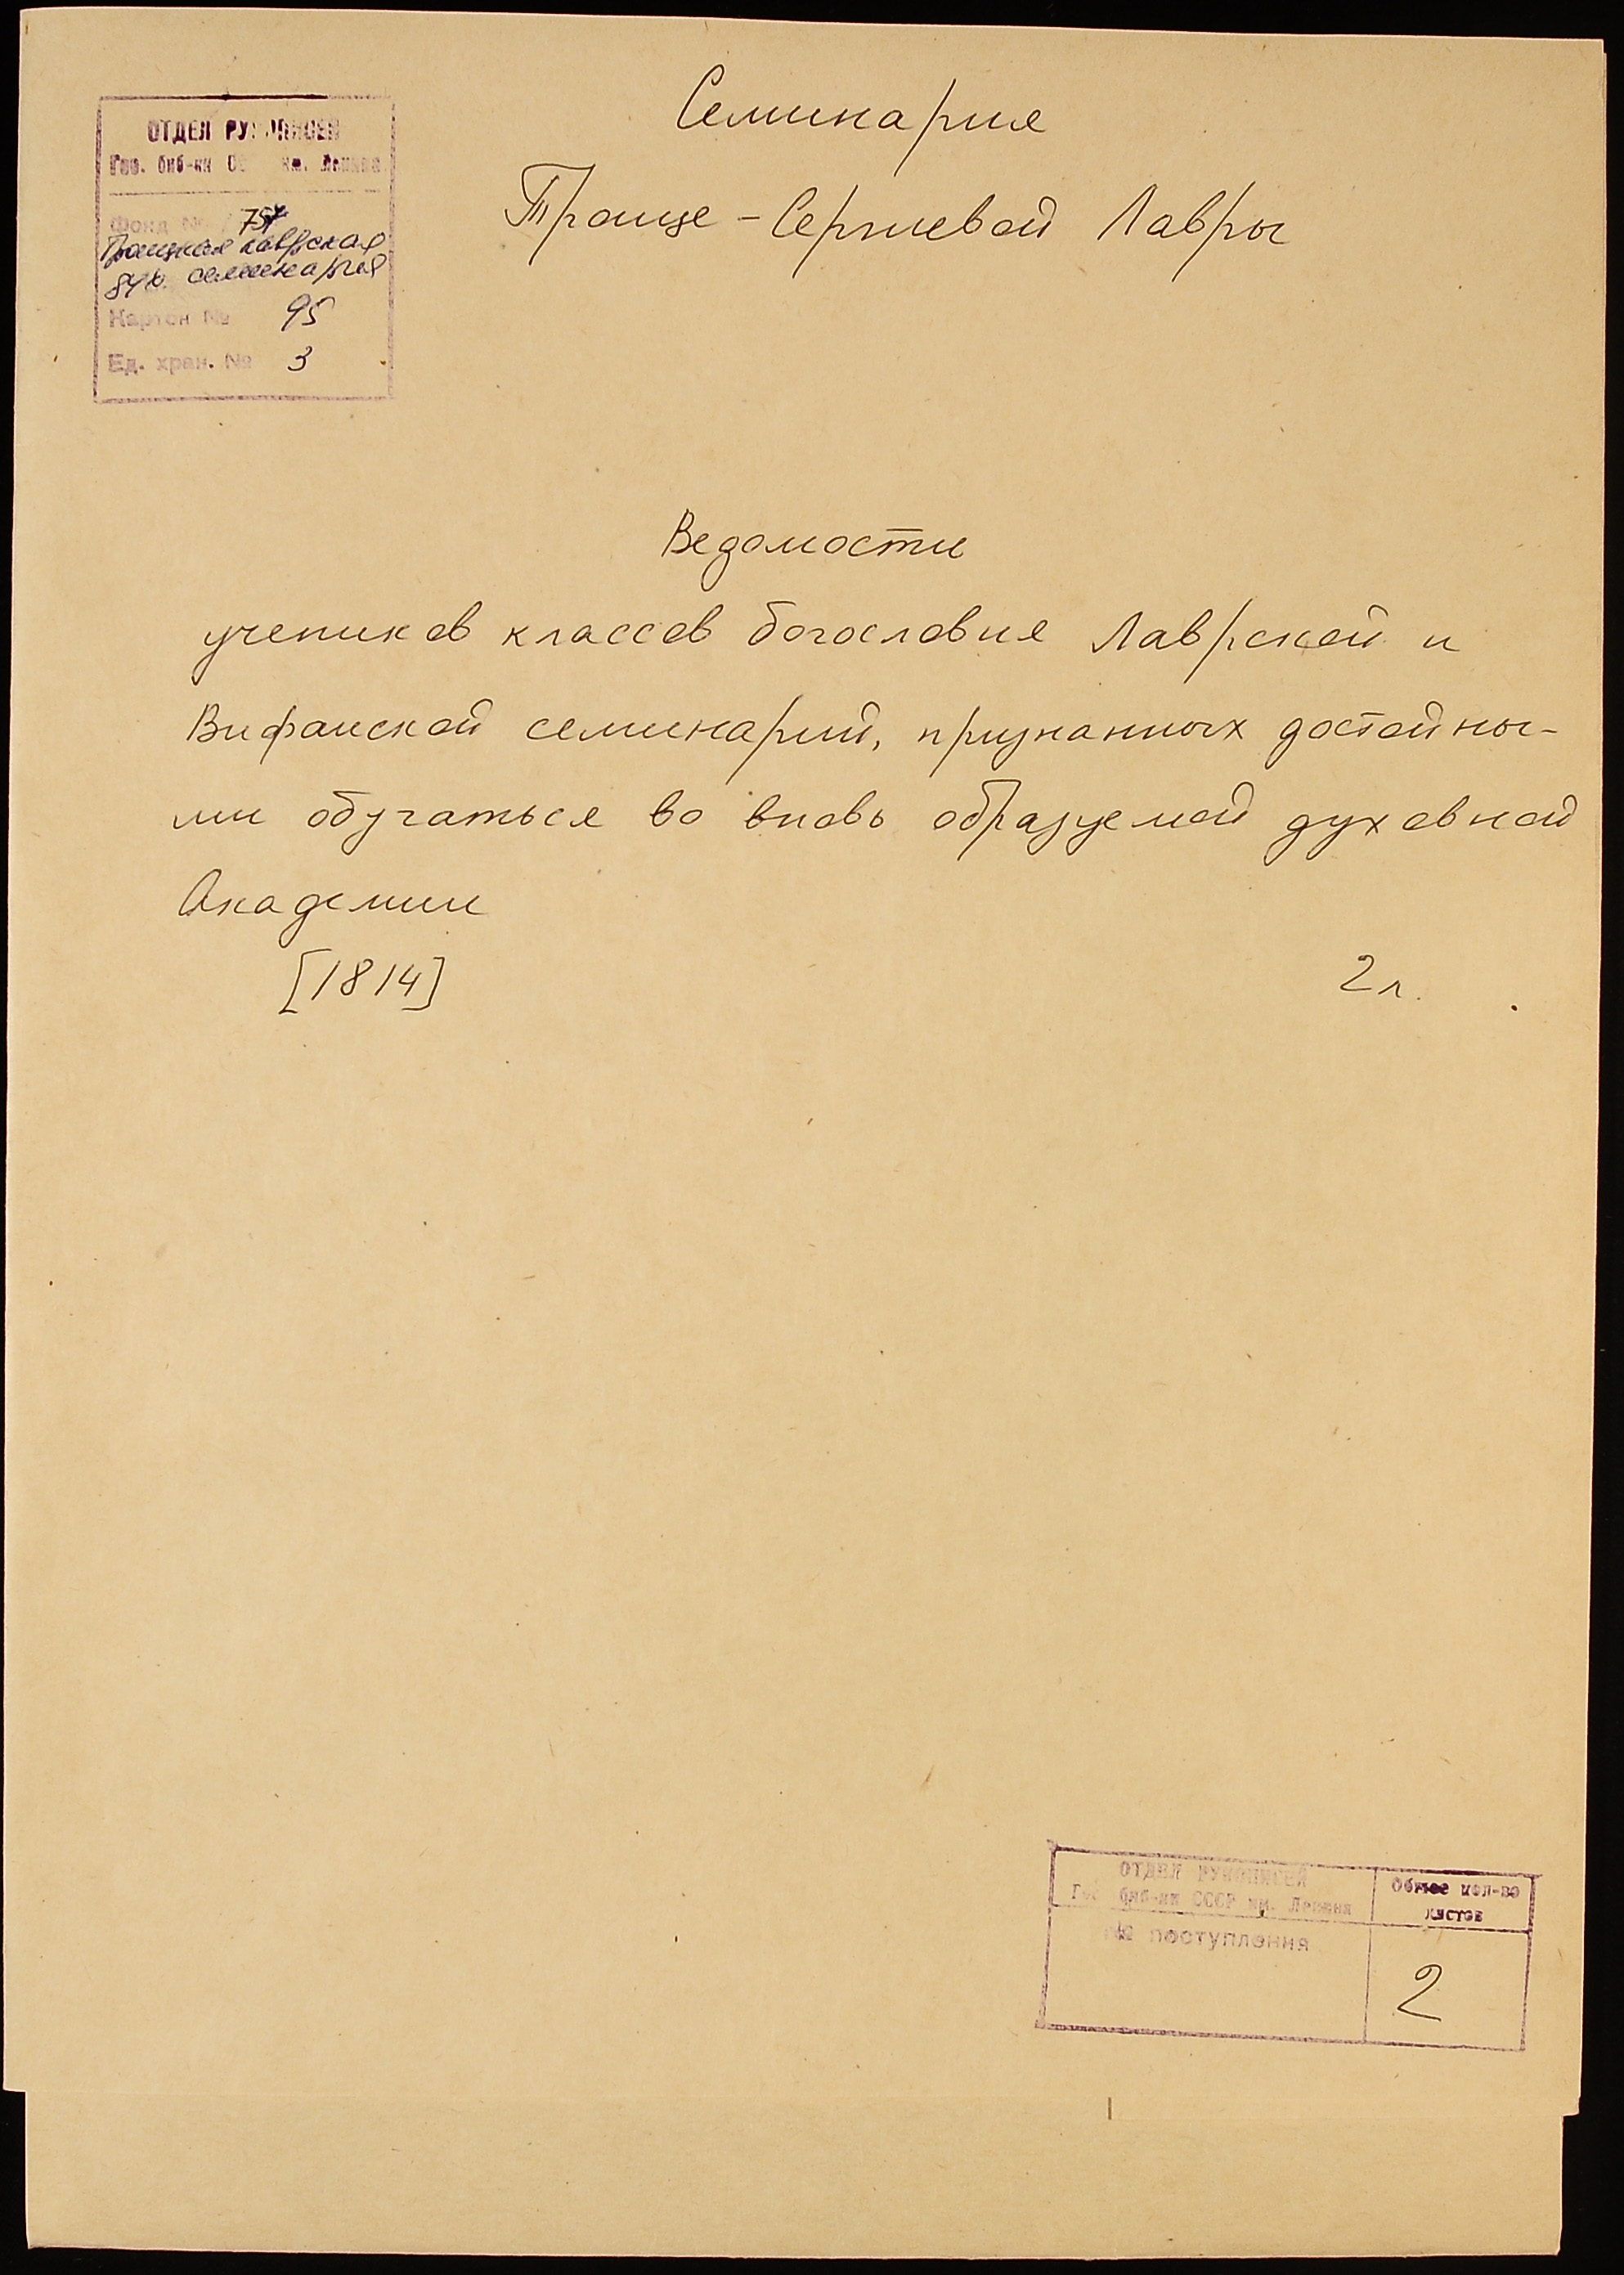 Семинария
Троице - Сергиевой Лавры
ОТДЕЛ РУКОПИСЕЙ
Гос. биб-ки СССР им. Ленина
Фонд № 757
Троицкая лаврская
дух. семинария
Картон № 95
Ед. хран. № 3
Ведомости
учеников классов богословия Лаврской и
Вифанской семинарий, признанных достойны-
ми обучаться во вновь образуемой духовной
Академии
[1814] 2 л.
ОТДЕЛ РУКОПИСЕЙ
Гос. биб-ки СССР им. Ленина
Общее кол-во
листов
№ поступления
2